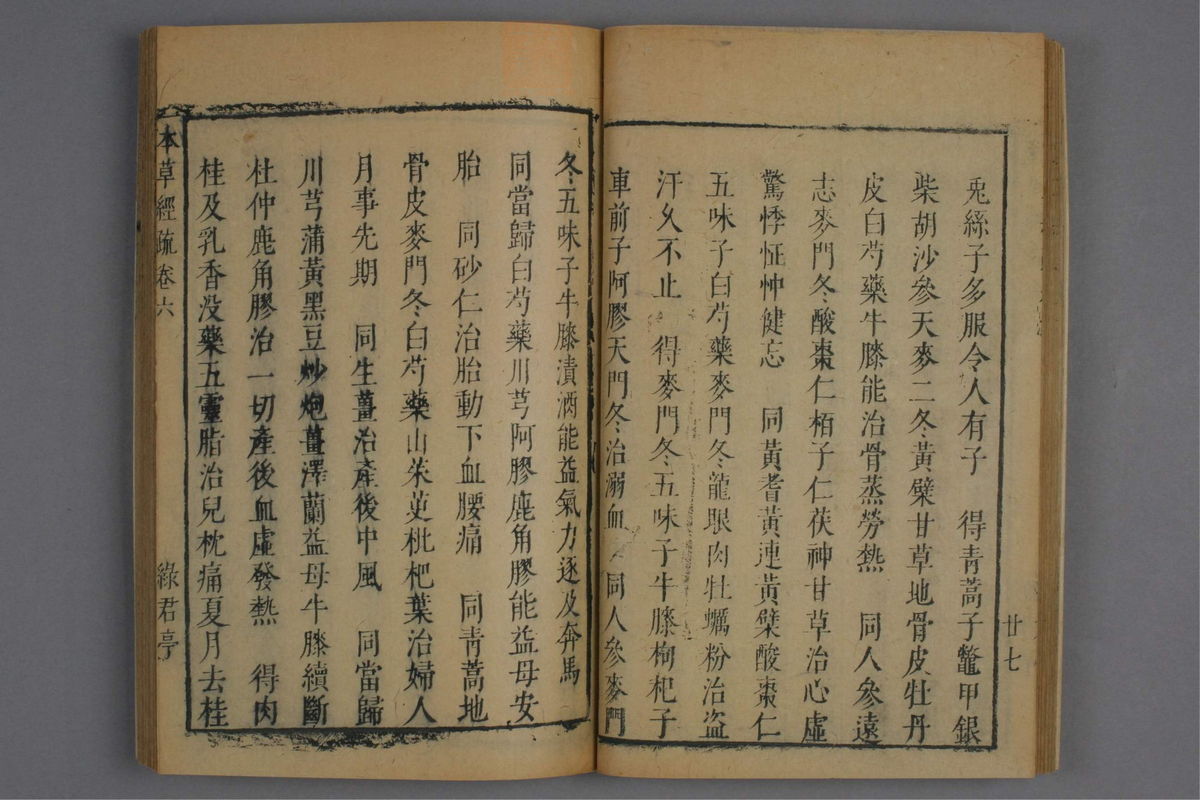 兎絲子多服令人有子　得青蒿子鼈甲銀
柴胡沙參天麥二冬黃檗甘草地骨皮牡丹
皮白芍藥牛膝能治骨蒸勞熱　同人參遠
志麥門冬酸棗仁栢子仁茯神甘草治心虛
驚悸怔忡健忘　同黃耆黃連黃檗酸棗仁
五味子白芍藥麥門冬龍眼肉牡蠣粉治盗
汗久不止　得麥門冬五味子牛膝枸杞子
車前子阿膠天門冬治溺血　同人參麥門
廿七
冬五味子牛膝漬酒能益氣力逐及奔馬
同當歸白芍藥川芎阿膠鹿角膠能益母安
胎　同砂仁治胎動下血腰痛　同青蒿地
骨皮麥門冬白芍藥山茱萸枇杷葉治婦人
月事先期　同生薑治產後中風　同當歸
川芎蒲黃黑豆炒炮薑澤蘭益母牛膝續斷
杜仲鹿角膠治一切產後血虛發熱　得肉
桂及乳香没藥五靈脂治兒枕痛夏月去桂
本草經疏卷六　綠君亭